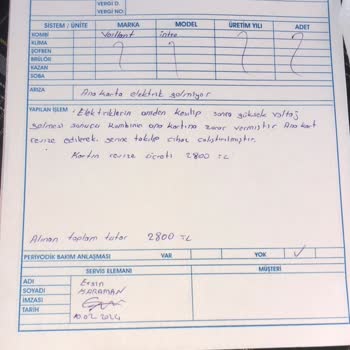 VERGİ D.
VERGİ NO:
SİSTEM / ÜNİTE MARKA MODEL ÜRETİM YILI ADET
KOMBİ Vaillant intro
KLİMA
ŞOFBEN
BRÜLÖR
KAZAN
SOBA
ARIZA Ana karta elektrik gelmiyor
YAPILAN İŞLEM : Elektriklerin aniden kesilip sonra yüksek voltaj
gelmesi sonucu kombinin ana kartına zarar vermiştir Ana kart
revize edilerek yerine takılıp cihaz çalıştırılmıştır.
Kartın revize ücreti 2800 TL
Alınan toplam tutar 2800 TL
PERİYODİK BAKIM ANLAŞMASI VAR YOK ✓
SERVİS ELEMANI MÜŞTERİ
ADI Ersin
SOYADI KARAMAN
İMZASI
TARİH 10.02.2024